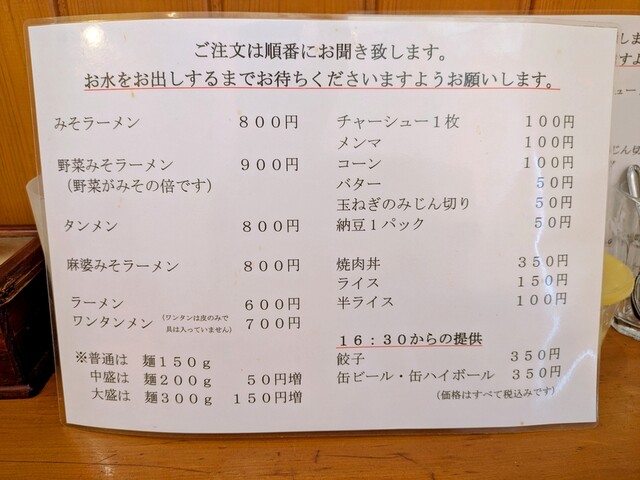 ご注文は順番にお聞き致します。
お水をお出しするまでお待ちくださいますようお願いします。
みそラーメン ８００円
野菜みそラーメン ９００円
（野菜がみその倍です）
タンメン ８００円
麻婆みそラーメン ８００円
ラーメン ６００円
ワンタンメン （ワンタンは皮のみで具は入っていません） ７００円
※普通は 麺１５０ｇ
中盛は 麺２００ｇ ５０円増
大盛は 麺３００ｇ １５０円増
チャーシュー１枚 １００円
メンマ １００円
コーン １００円
バター ５０円
玉ねぎのみじん切り ５０円
納豆１パック ５０円
焼肉丼 ３５０円
ライス １５０円
半ライス １００円
１６：３０からの提供
餃子 ３５０円
缶ビール・缶ハイボール ３５０円
（価格はすべて税込みです）